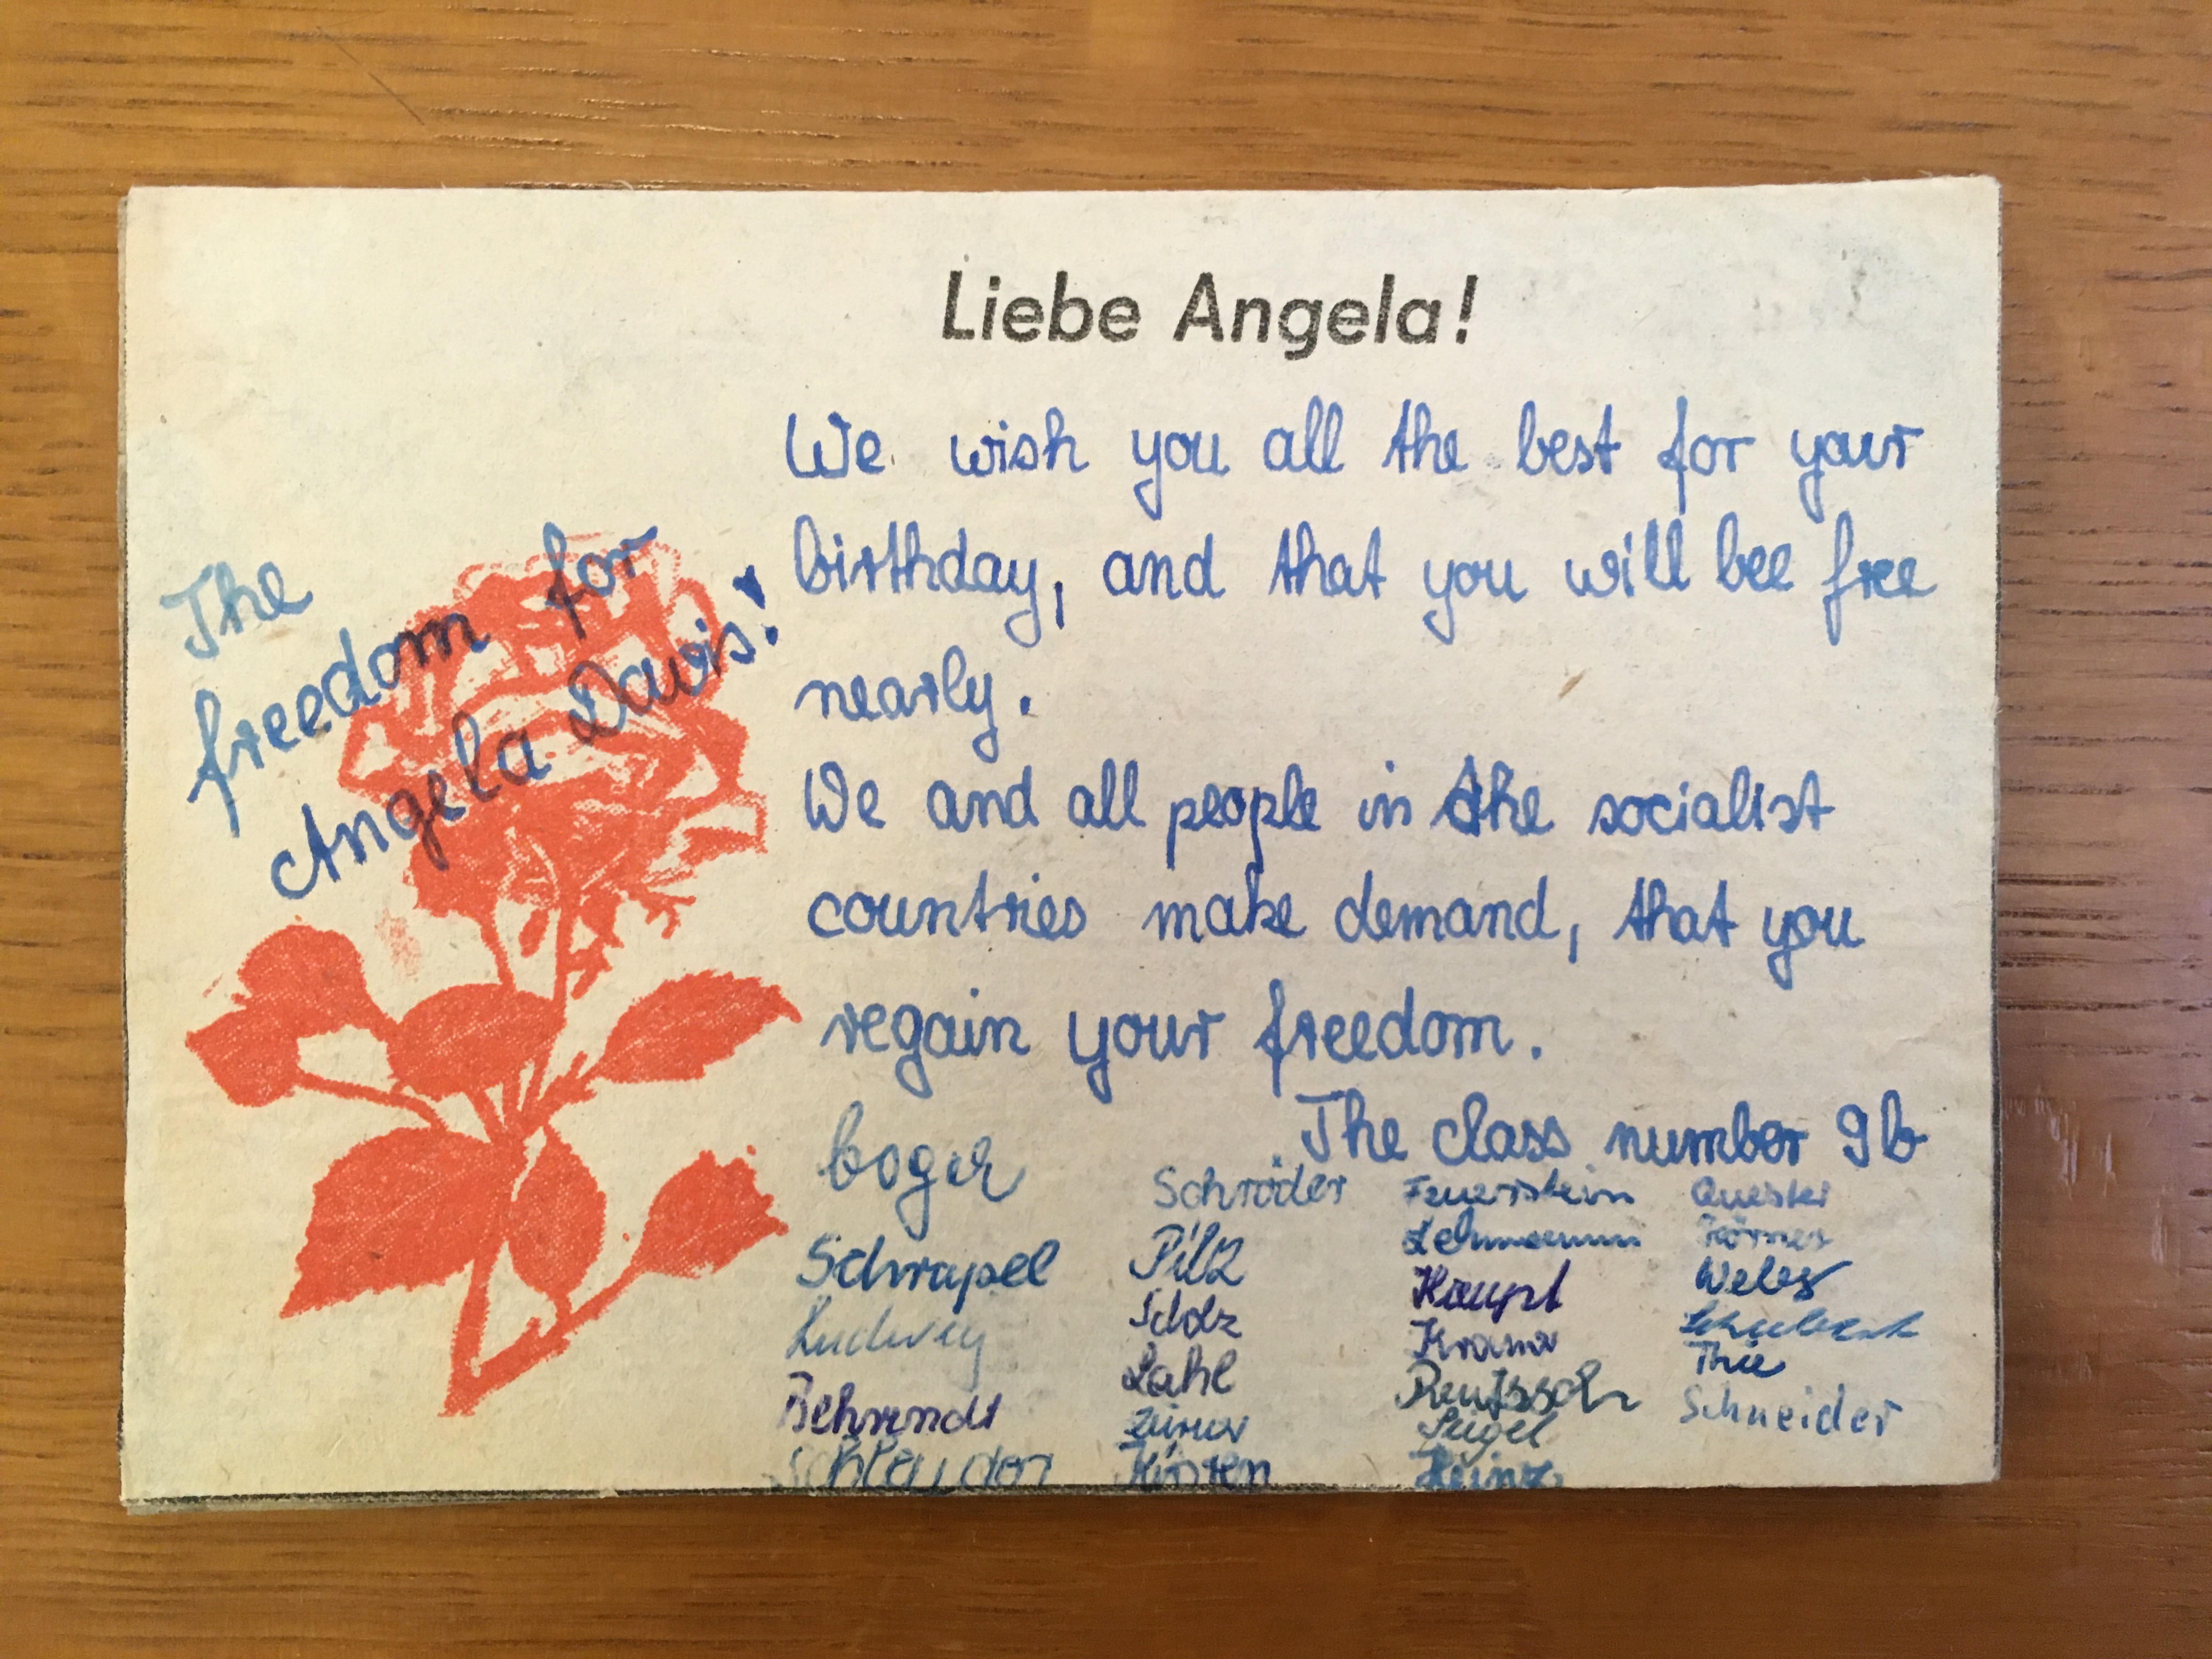 Liebe Angela!
We wish you all the best for your
birthday, and that you will bee free
nearly.
We and all people in the socialist
countries make demand, that you
regain your freedom.
The class number 9b
The
freedom for
Angela Davis!
boger
Schrapel
Ludwig
Behrendt
Schröder
Pilz
Scholz
Lahl
Kirsten
Feuerstein
Lehmann
Haupt
Rentzsch
Heinz
Thie
Schneider